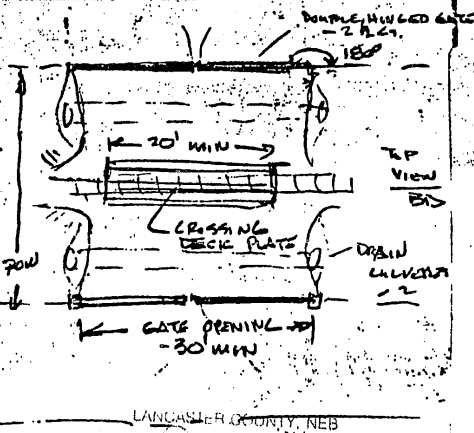 DOUBLE HINGED GATE
- 2 REQ.
180°
20' MIN
TOP
VIEW
CROSSING
DECK PLATE
DRAIN
CULVERTS
- 2
ROW
GATE OPENING
- 30' MIN
LANCASTER COUNTY, NEB